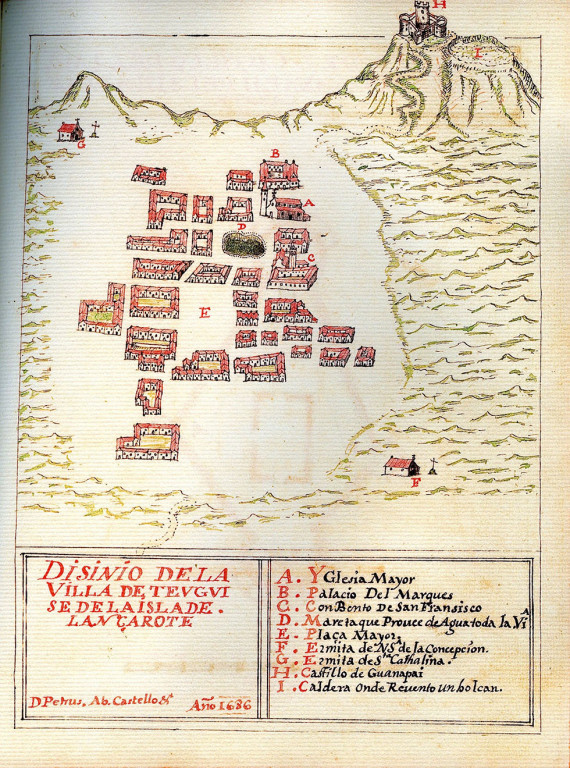 H
I
G
B
A
D
C
E
F
DISINIO DE LA
VILLA DE TEVGUI
SE DE LA ISLA DE.
LANÇAROTE
D Petrus. Ab. Castello &ª
Año 1686
A. YGlesia Mayor
B. Palacio Del Marques
C. ConBento De San Fransisco
D. Mareta que Prouee de Agua toda la Viᴬ
E - Plaça Mayor,
F. Ermita de Nª Sª de la Concepcion.
G. Ermita de Sᵗᵃ Cathalina.
H. Castillo de Guanapai
I. Caldera Onde Reuento Un bolcan.